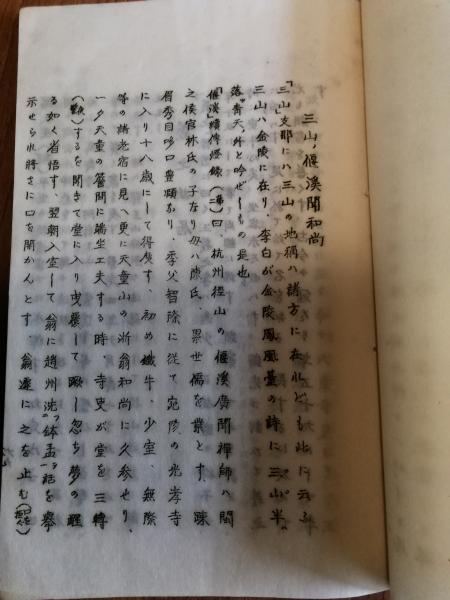 三山、偃溪聞和尚
「三山」支那にハ三山の地稱ハ諸方に在れども此に云ふ
三山ハ金陵に在り、李白が金陵鳳凰臺の詩に三山半
落青天外と吟ぜしもの是也
「偃溪」續傳燈錄曰、杭州徑山の偃溪廣聞禪師ハ閩
之侯官林氏の子なり母ハ陳氏、累世儒を業とす、疎
眉秀目哆口豊頰なり、季父智隆に從て宛陵の光孝寺
に入り十八歳にして得度す、初め鐵牛、少室、無際
等の諸老宿に見へ更に天童山の浙翁和尚に久參せり、
一夕天童の簷間に端坐工夫する時、寺吏が堂を三轉
するを聞きて堂に入り曳履して蹶し忽ち夢の醒
る如く省悟す、翌朝入室して翁に趙州洗鉢盂ノ話を擧
示せられ將さに口を開かんとす、翁遽に之を止む